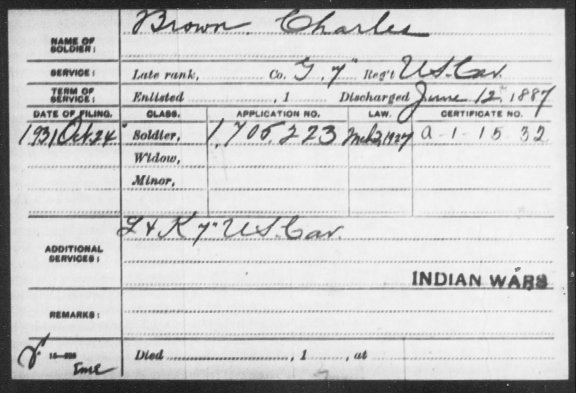 Brown, Charles
NAME OF SOLDIER:
SERVICE: Late rank, Co. G, 7" Reg't U.S. Cav.
TERM OF SERVICE: Enlisted , 1 Discharged June 12", 1887
DATE OF FILING. CLASS. APPLICATION NO. LAW. CERTIFICATE NO.
1931 Oct. 24 Soldier, 1,705,223 Mch 3, 1927 A-1-15-32
Widow,
Minor,
L & K 7" U.S. Cav.
ADDITIONAL SERVICES:
INDIAN WARS
REMARKS:
Died , 1 , at